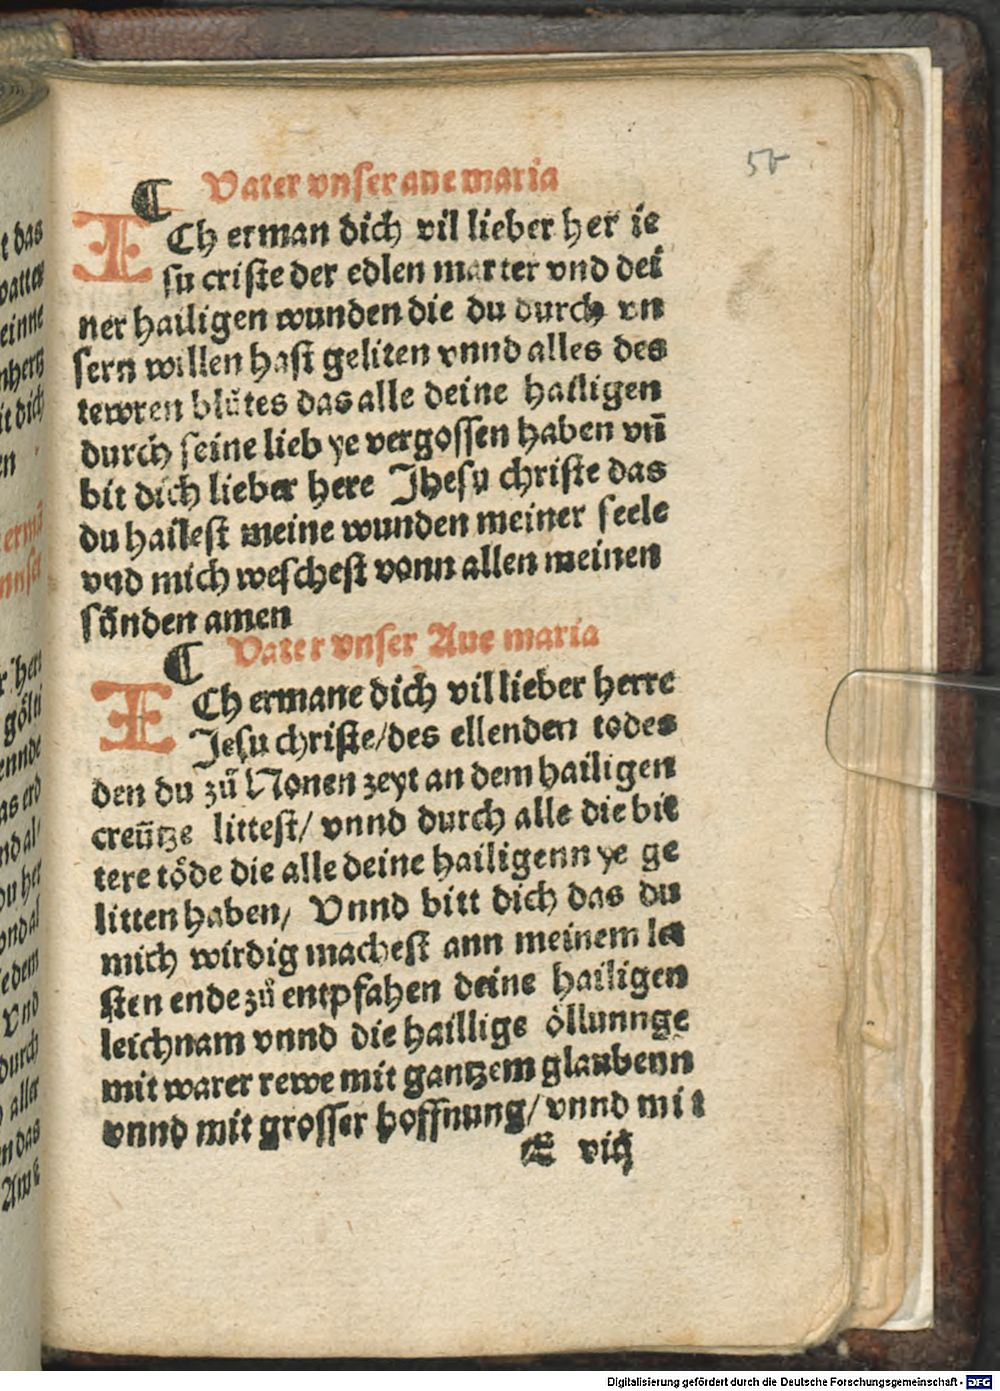 5v
¶ Vater vnser aue maria
ICh erman dich vil lieber her ie
su criste der edlen marter vnd dei
ner hailigen wunden die du durch vn
sern willen hast geliten vnnd alles des
tewren blůtes das alle deine hailigen
durch seine lieb ye vergossen haben vñ
bit dich lieber here Jhesu christe das
du hailest meine wunden meiner seele
vnd mich weschest vonn allen meinen
sünden amen
¶ Vater vnser Aue maria
ICh ermane dich vil lieber herre
Jesu christe/des ellenden todes
den du zů Nonen zeyt an dem hailigen
creütze littest/ vnnd durch alle die bit
tere töde die alle deine hailigenn ye ge
litten haben/ Vnnd bitt dich das du
mich wirdig machest ann meinem le
sten ende zů entpfahen deine hailigen
leichnam vnnd die haillige öllunnge
mit warer rewe mit gantzem glaubenn
vnnd mit grosser hoffnung/vnnd mit
Digitalisierung gefördert durch die Deutsche Forschungsgemeinschaft - DFG